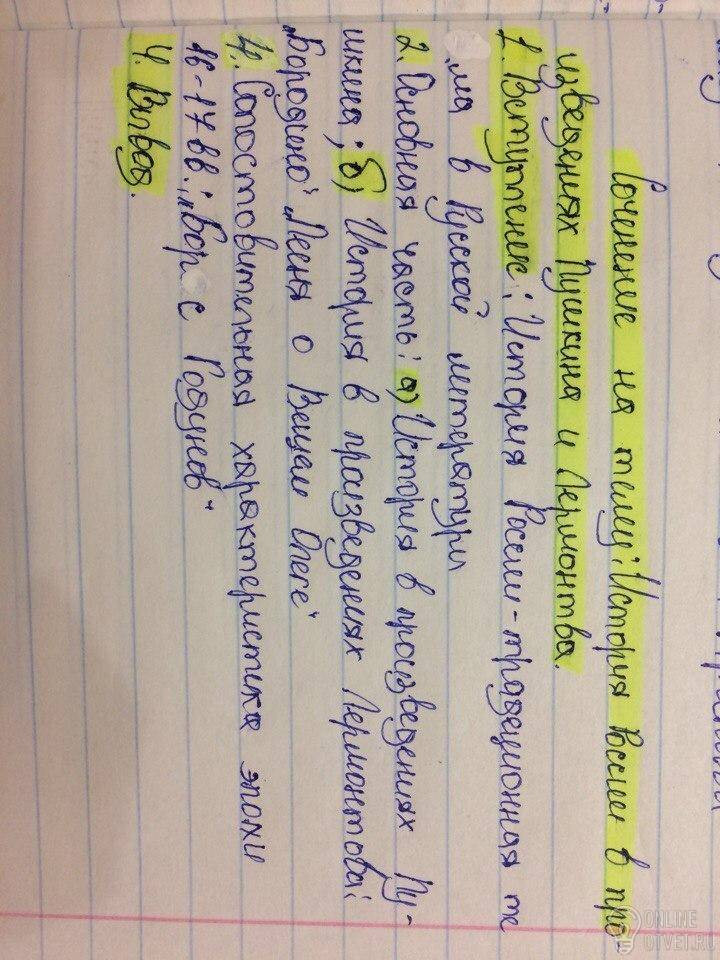 Сочинение на тему: История России в про-
изведениях Пушкина и Лермонтва.
1. Вступление: История России - традиционная те
ма в Русской литературы
2. Основная часть: а) История в произведениях Пу-
шкина; б) История в произведениях Лермонтова:
"Бородино" "Песня о Вещам Олеге"
Сопостовительная характеристика эпохи
16-17 вв: "Бор с Годунов"
4. Вывод.
ONLINE
OTVET.RU